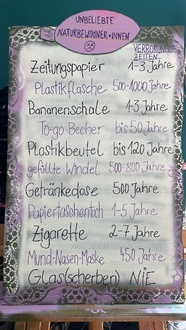 UNBELIEBTE
NATURBEWOHNER*INNEN
VERROTTUNGS-
ZEITEN
Zeitungspapier 1-3 Jahre
Plastikflasche 500-1000 Jahre
Bananenschale 1-3 Jahre
To-go Becher bis 50 Jahre
Plastikbeutel bis 120 Jahre
gefüllte Windel 500-800 Jahre
Getränkedose 500 Jahre
Papiertaschentuch 1-5 Jahre
Zigarette 2-7 Jahre
Mund-Nasen-Maske 450 Jahre
Glas(scherben) NIE